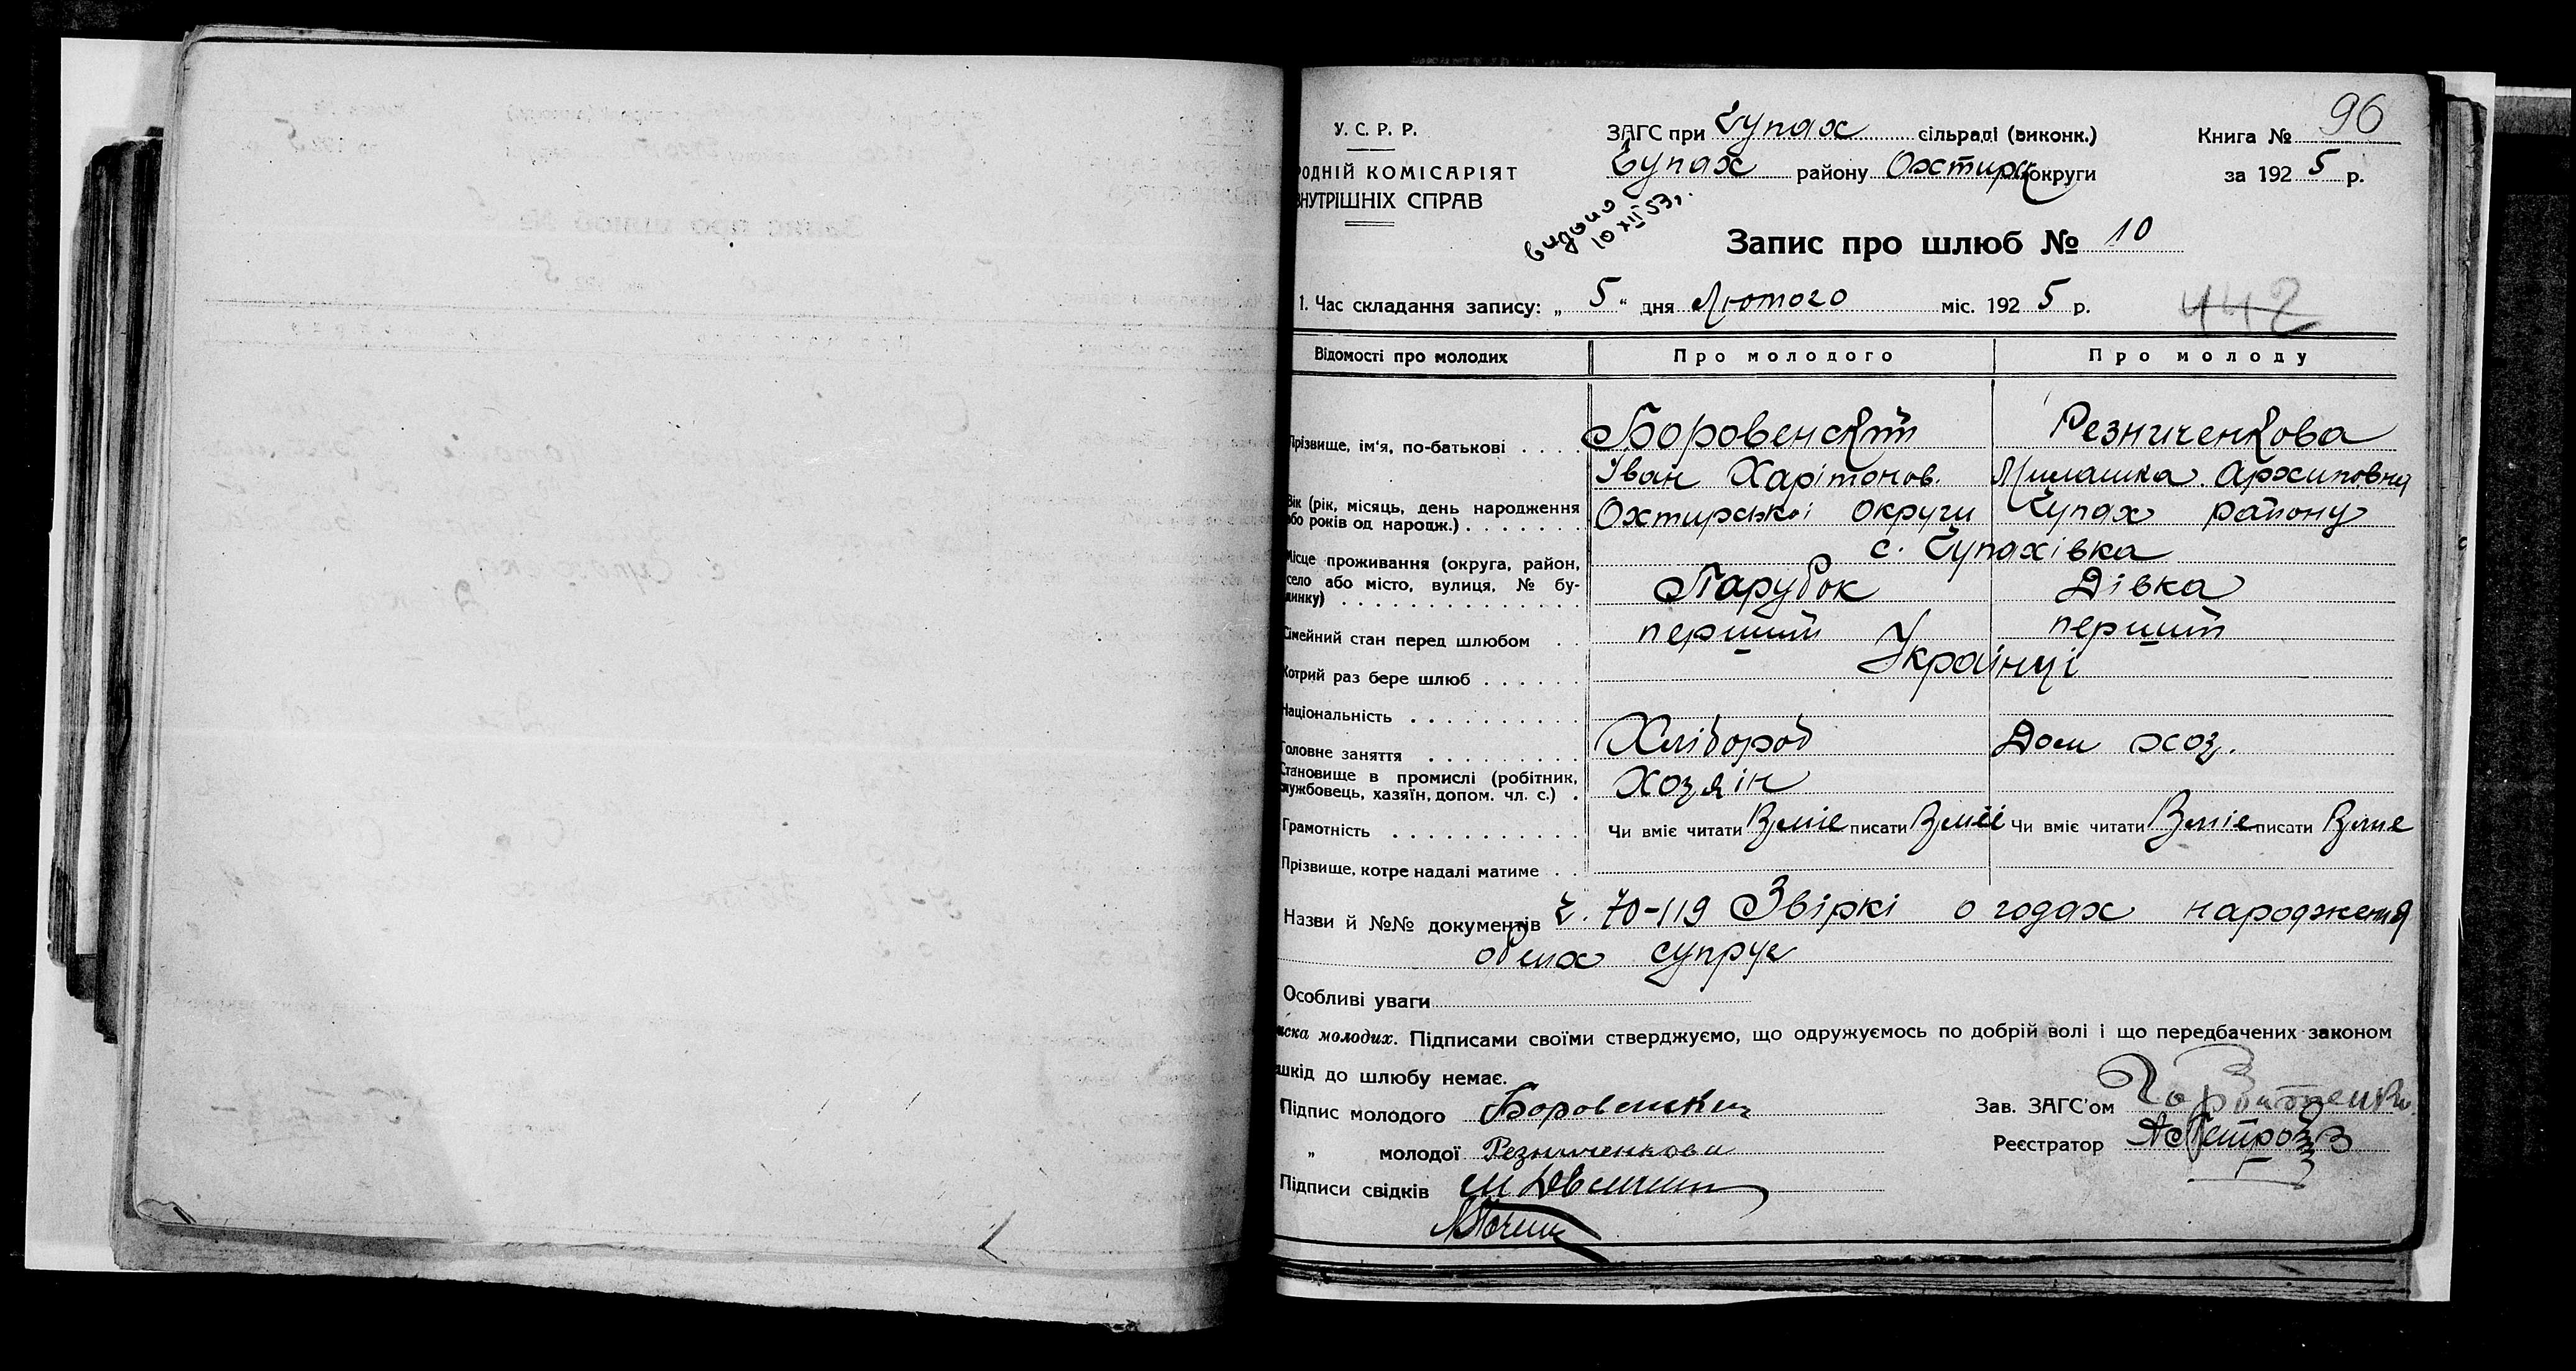 96
У. С. Р. Р.
ЗАГС при Чупах сільраді (виконк.)
Книга №
РОДНІЙ КОМІСАРІЯТ
Чупах району Охтирк округи
за 1925 р.
ВНУТРІШНІХ СПРАВ
видано
10 XII 53 г.
Запис про шлюб № 10
1. Час складання запису: „ 5 “ дня Лютого міс. 1925 р.
442
Відомості про молодих Про молодого Про молоду
Прізвище, ім'я, по-батькові . . . . Боровенский Резниченкова
Іван Харітонов. Милашка Архиповна
Вік (рік, місяць, день народження
або років од народж.) . . . . . . . Охтирської Округи Чупах району
с. Чупахівка
Місце проживання (округа, район,
село або місто, вулиця, № бу-
динку) . . . . . . . . . . . . . . Парубок Дівка
Сімейний стан перед шлюбом . . перший перший
Українці
Котрий раз бере шлюб . . . . . .
Національність . . . . . . . . . .
Головне заняття . . . . . . . . . Хлібороб Дом хоз.
Становище в промислі (робітник,
службовець, хазяїн, допом. чл. с.) . Хозяін
Грамотність . . . . . . . . . . . Чи вміє читати Вміє писати Вміє Чи вміє читати Вміє писати Вміє
Прізвище, котре надалі матиме . .
Назви й №№ документів Ч. 70-119 Звіркі о годах народження
обеих супруг
Особливі уваги
иска молодих. Підписами своїми стверджуємо, що одружуємось по добрій волі і що передбачених законом
шкід до шлюбу немає.
Підпис молодого Боровенский
Зав. ЗАГС'ом
„ молодої Резниченкова
Реєстратор
Підписи свідків